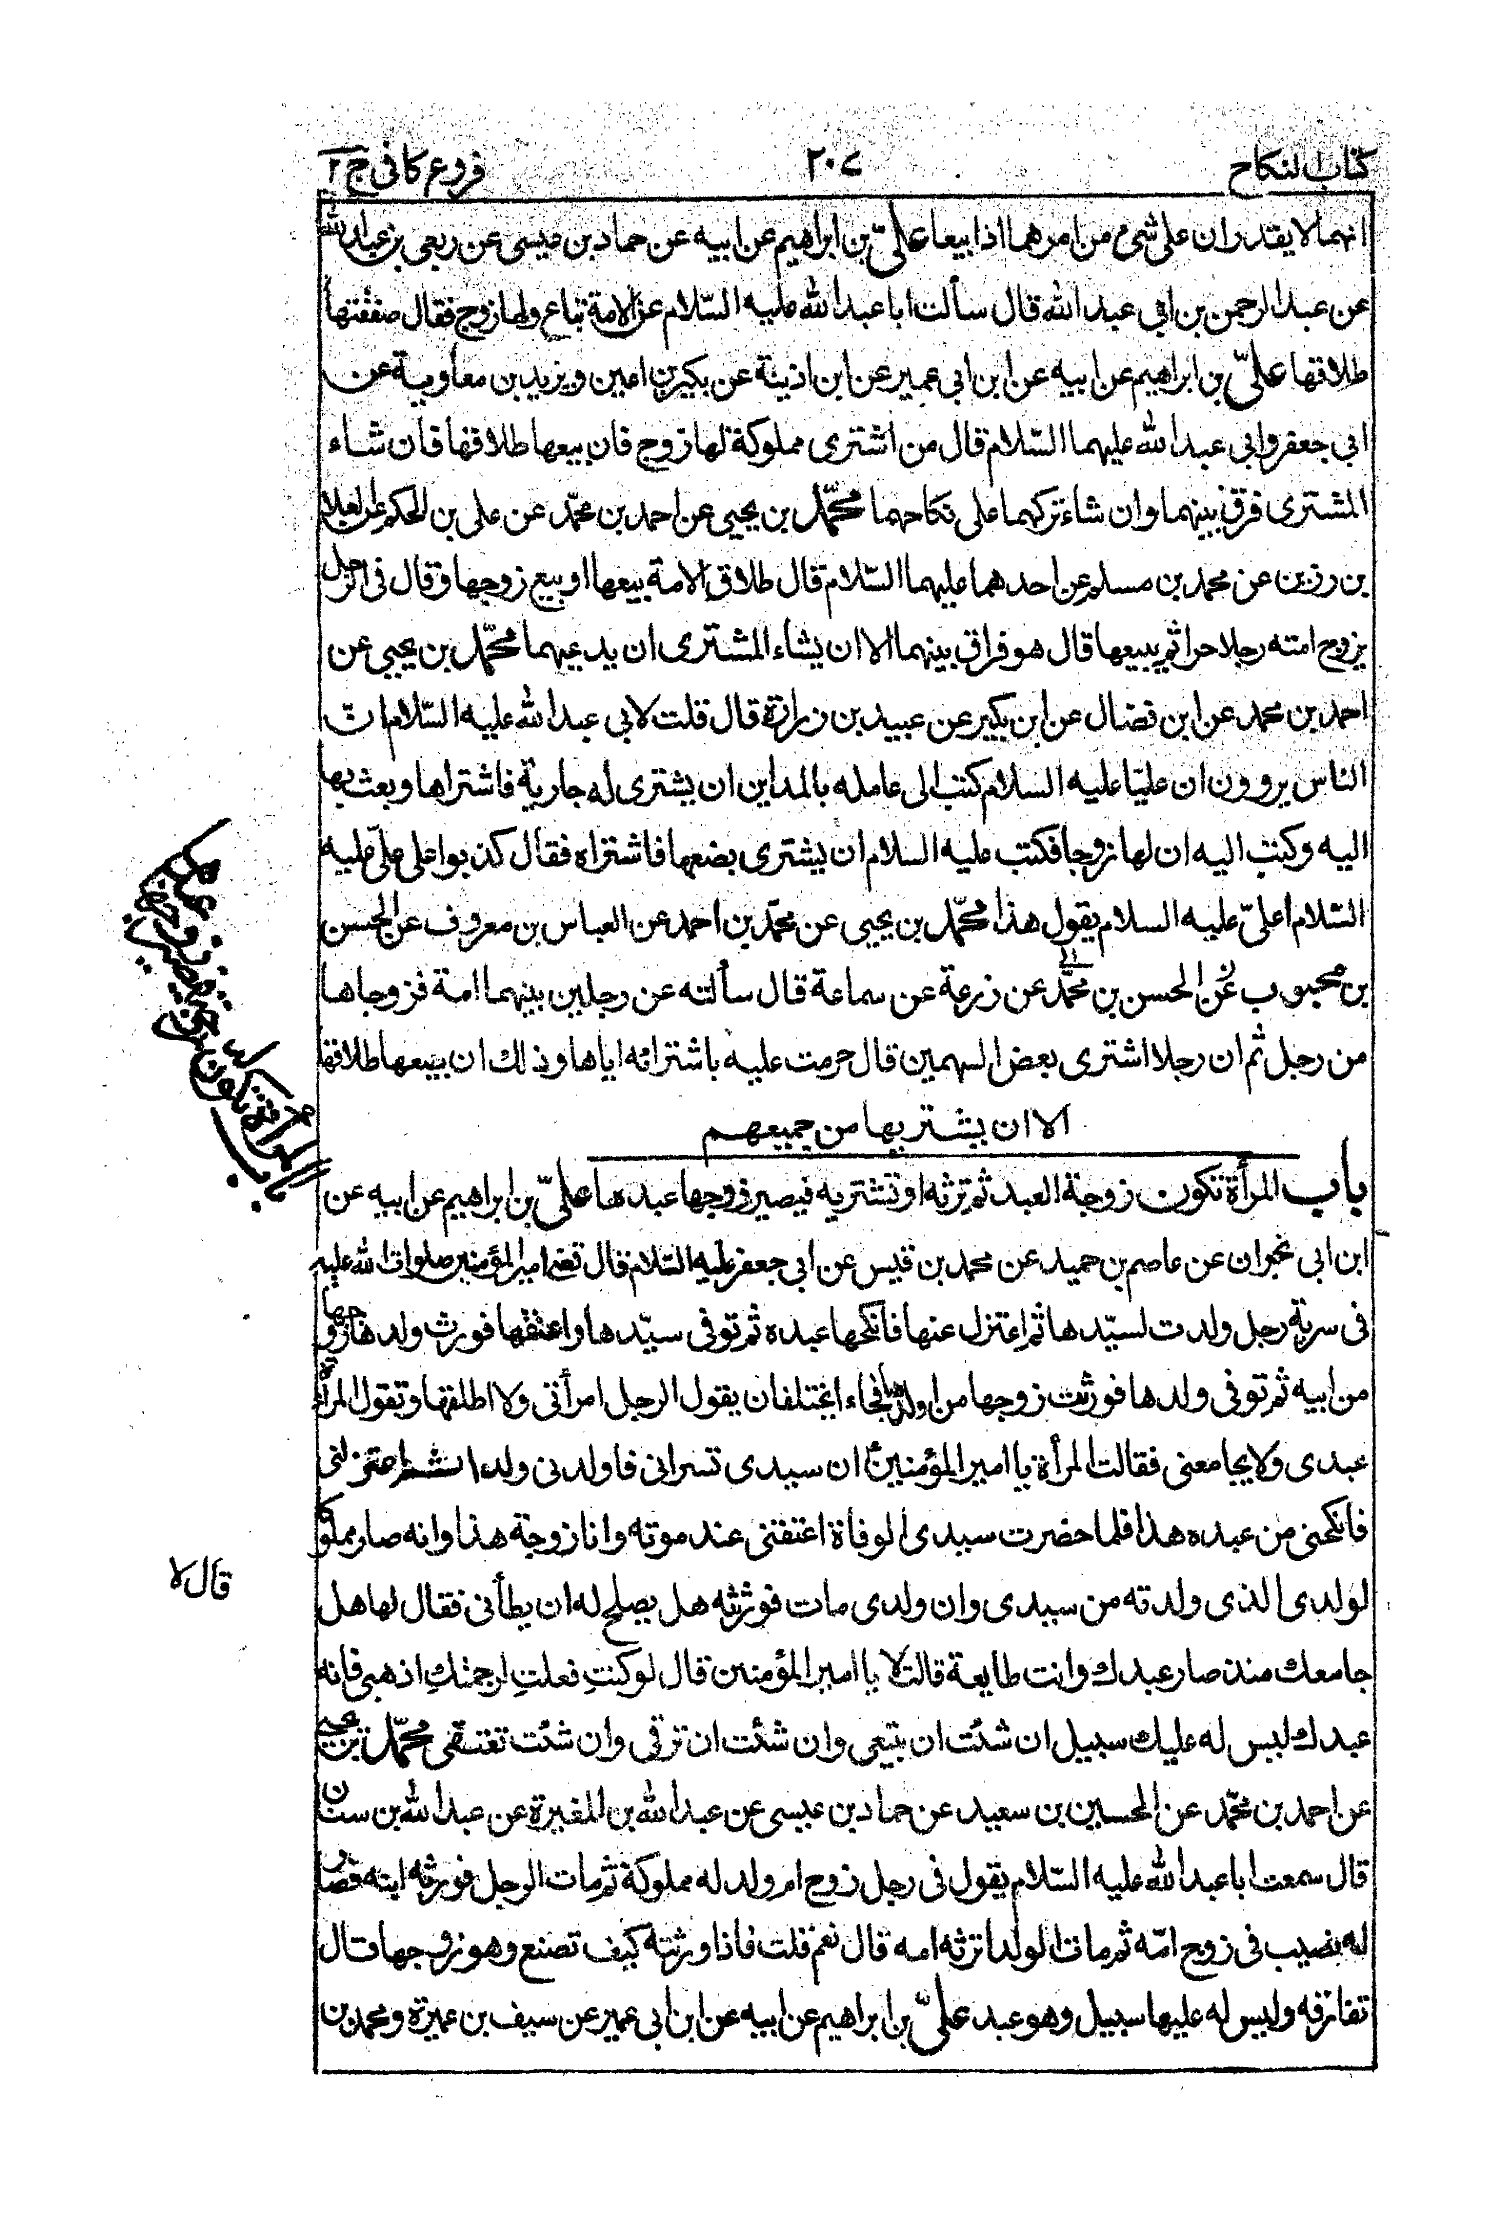 كتاب النكاح
٢٠٧
فروع كافي ج ٢
انهما لا يقدران على شيء من امرهما اذا بيعا علىّ بن ابراهيم عن ابيه عن حماد بن عيسى عن ربعى بن عبد الله
عن عبد الرحمن بن ابي عبد الله قال سألت ابا عبد الله عليه السّلام عن الامة تباع ولها زوج فقال صفقتها
طلاقها علىّ بن ابراهيم عن ابيه عن ابن ابي عمير عن ابن اذينة عن بكير بن اعين وبزيد بن معاوية عن
ابي جعفر وابي عبد الله عليهما السّلام قال من اشترى مملوكة لها زوج فان بيعها طلاقها فان شاء
المشترى فرق بينهما وان شاء تركهما على نكاحهما محمّد بن يحيى عن احمد بن محمّد عن على بن الحكم عن العلا
بن رزين عن محمد بن مسلم عن احدهما عليهما السّلام قال طلاق الامة بيعها او بيع زوجها وقال فى الرجل
يزوج امته رجلا حرا ثم يبيعها قال هو فراق بينهما الا ان يشاء المشترى ان يدعهما محمّد بن يحيى عن
احمد بن محمد عن ابن فضال عن ابن بكير عن عبيد بن زرارة قال قلت لابي عبد الله عليه السّلام انّ
الناس يروون ان عليّا عليه السلام كتب الى عامله بالمداين ان يشترى له جارية فاشتراها وبعث بها
اليه وكتب اليه ان لها زوجا فكتب عليه السلام ان يشترى بضعها فاشتراه فقال كذبوا على علىّ عليه
السّلام اعلىّ عليه السلام يقول هذا محمّد بن يحيى عن محمّد بن احمد عن العباس بن معروف عن الحسن
بن محبوب عن الحسن بن محمّد عن زرعة عن سماعة قال سألته عن رجلين بينهما امة فزوجاها
من رجل ثم ان رجلا اشترى بعض السهمين قال حرمت عليه باشترائه اياها وذلك ان بيعها طلاقها
الا ان يشتريها من جميعهم
باب المرأة تكون زوجة العبد ثم ترثه او تشتريه فيصير زوجها عبدها علىّ بن ابراهيم عن ابيه عن
ابن ابي نجران عن عاصم بن حميد عن محمد بن قيس عن ابي جعفر عليه السّلام قال قضى امير المؤمنين صلوات الله عليه
فى سرية رجل ولدت لسيّدها ثم اعتزل عنها فانكحها عبده ثم توفى سيّدها واعتقها فورث ولدها زوجها
من ابيه ثم توفى ولدها فورثت زوجها من ولدها فجاءا يختلفان يقول الرجل امرأتى ولا اطلقها وتقول المرأة
عبدى ولا يجامعنى فقالت المرأة يا امير المؤمنين ان سيدى تسرانى فاولدنى ولدا ثم اعتزلنى
فانكحنى من عبده هذا فلما حضرت سيدى الوفاة اعتقنى عند موته وانا زوجة هذا وانه صار مملوكا
لولدى الذى ولدته من سيدى وان ولدى مات فورثته هل يصلح له ان يطأنى فقال لها هل
جامعك منذ صار عبدك وانت طايعة قالت لا يا امير المؤمنين قال لو كنتِ فعلتِ لرجمتكِ اذهبى فانه
عبدك ليس له عليك سبيل ان شئت ان تبيعى وان شئت ان ترقى وان شئت تعتقى محمّد بن يحيى
عن احمد بن محمّد عن الحسين بن سعيد عن حماد بن عيسى عن عبد الله بن المغيرة عن عبد الله بن سنان
قال سمعت ابا عبد الله عليه السّلام يقول فى رجل زوج ام ولد له مملوكة ثم مات الرجل فورثه ابنه فصار
له نصيب فى زوج امّه ثم مات الولد اترثه امه قال نعم قلت فاذا ورثته كيف تصنع وهو زوجها قال
تفارقه وليس له عليها سبيل وهو عبد علىّ بن ابراهيم عن ابيه عن ابن ابي عمير عن سيف بن عميرة ومحمد بن
باب المرأة تكون
قال لا